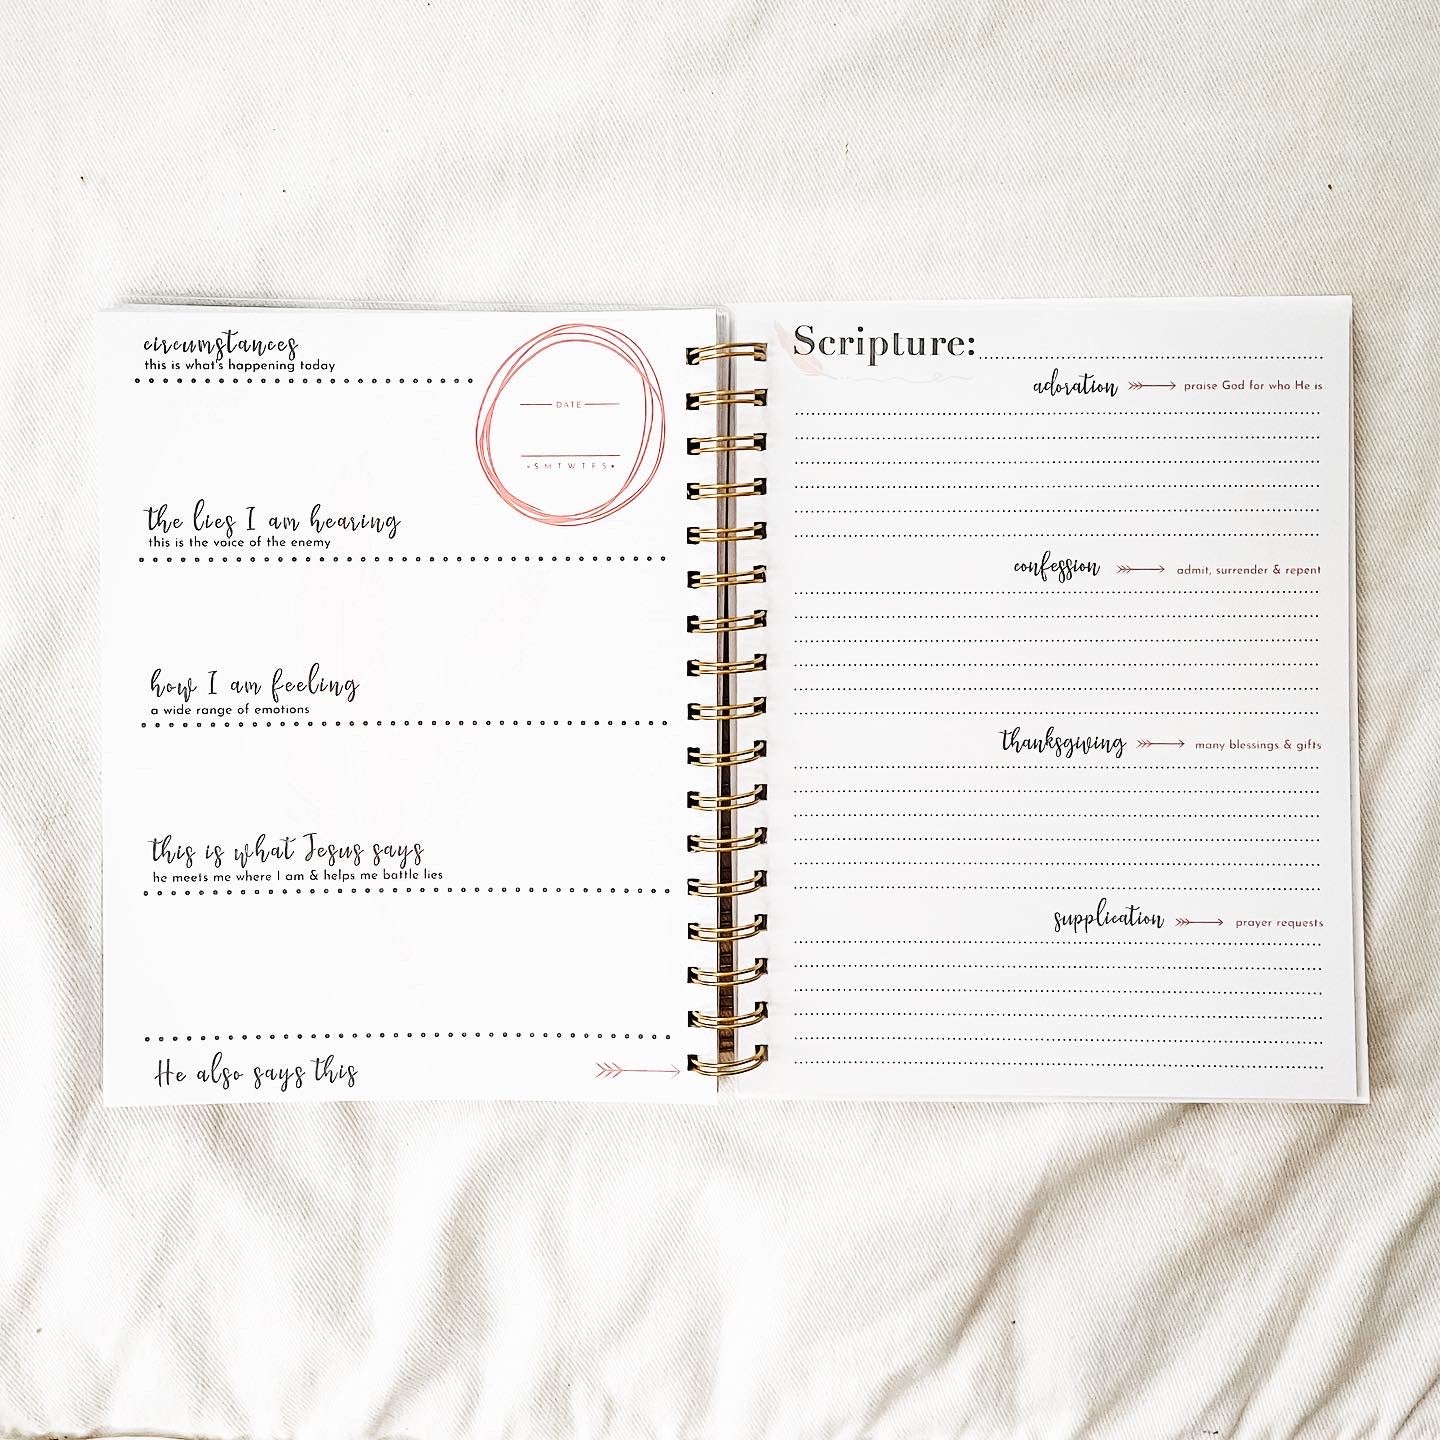 circumstances
this is what's happening today
DATE
• S M T W T F S •
the lies I am hearing
this is the voice of the enemy
how I am feeling
a wide range of emotions
this is what Jesus says
he meets me where I am & helps me battle lies
He also says this
Scripture:
adoration praise God for who He is
confession admit, surrender & repent
thanksgiving many blessings & gifts
supplication prayer requests